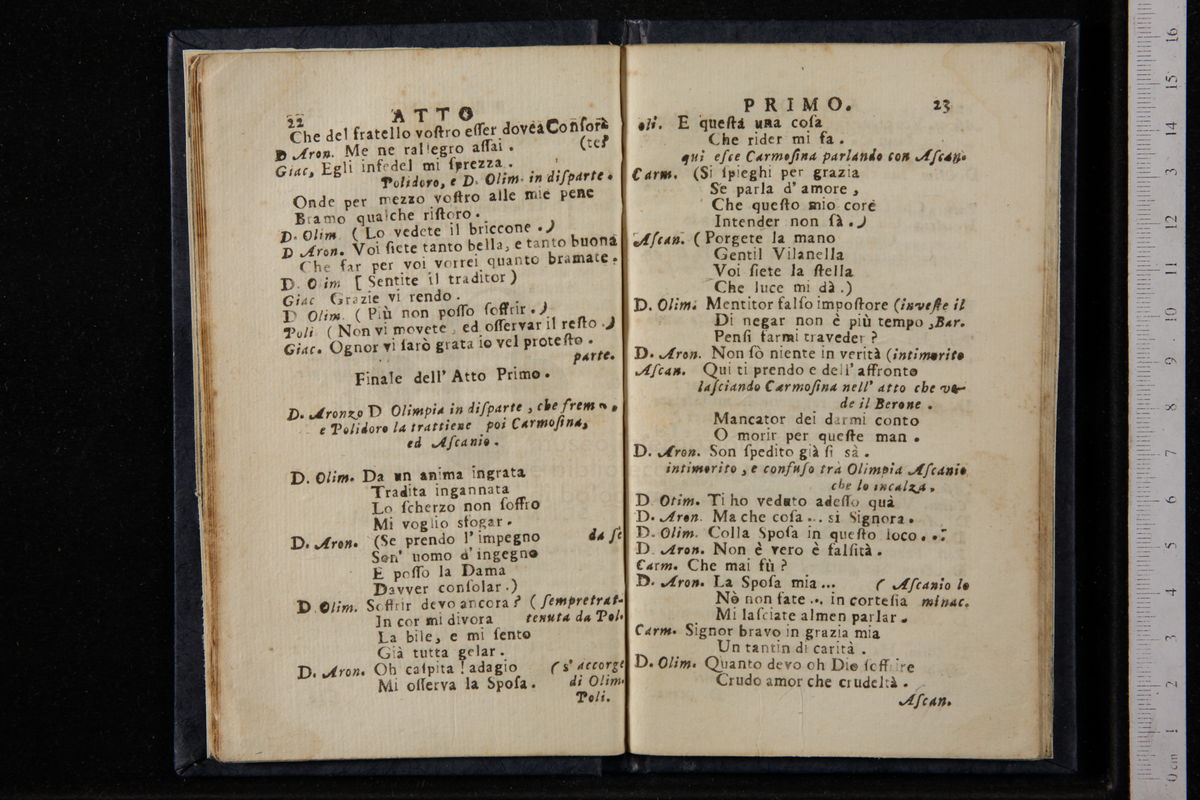 22 ATTO
Che del fratello voſtro eſſer dovea Conſor
(te?
D Aron. Me ne rallegro aſſai.
Giac, Egli infedel mi ſprezza.
Polidoro, e D. Olim. in diſparte.
Onde per mezzo voſtro alle mie pene
Bramo qualche riſtoro.
D. Olim. (Lo vedete il briccone.)
D Aron. Voi ſiete tanto bella, e tanto buona
Che far per voi vorrei quanto bramate.
D. Olim [Sentite il traditor)
Giac Grazie vi rendo.
D Olim. (Più non poſſo ſoffrir.)
Poli (Non vi movete, ed oſſervar il reſto.)
Giac. Ognor vi ſarò grata io vel proteſto.
parte.
Finale dell' Atto Primo.
D. Aronzo D Olimpia in diſparte, che freme,
e Polidoro la trattiene poi Carmoſina,
ed Aſcanio.
D. Olim. Da un anima ingrata
Tradita ingannata
Lo ſcherzo non ſoffro
Mi voglio sfogar.
D. Aron. (Se prendo l' impegno da ſè
Son' uomo d' ingegno
E poſſo la Dama
Davver conſolar.)
D Olim. Soffrir devo ancora? (ſempre trat-
In cor mi divora tenuta da Pol.
La bile, e mi ſento
Già tutta gelar.
D. Aron. Oh caſpita! adagio (s' accorge
Mi oſſerva la Spoſa. di Olim.
Poli.
PRIMO. 23
oli. E queſta una coſa
Che rider mi fa.
qui eſce Carmoſina parlando con Aſcan.
Carm. (Si ſpieghi per grazia
Se parla d' amore,
Che queſto mio core
Intender non ſà.)
Aſcan. (Porgete la mano
Gentil Vilanella
Voi ſiete la ſtella
Che luce mi dà.)
D. Olim. Mentitor falſo impoſtore (inveſte il
Di negar non è più tempo, Bar.
Penſi farmi traveder?
D. Aron. Non ſò niente in verità (intimorito
Aſcan. Qui ti prendo e dell' affronto
laſciando Carmoſina nell' atto che ve-
de il Berone.
Mancator dei darmi conto
O morir per queſte man.
D. Aron. Son ſpedito già ſi sà.
intimorito, e confuſo trà Olimpia Aſcanio
che lo incalza.
D. Otim. Ti ho veduto adeſſo quà
D. Aron. Ma che coſa... sì Signora.
D. Olim. Colla Spoſa in queſto loco...
D. Aron. Non è vero è falſità.
Carm. Che mai fù?
D. Aron. La Spoſa mia... (Aſcanio lo
Nò non fate... in corteſia minac.
Mi laſciate almen parlar.
Carm. Signor bravo in grazia mia
Un tantin di carità.
D. Olim. Quanto devo oh Dio ſoffrire
Crudo amor che crudeltà.
Aſcan.
0 cm 1 2 3 4 5 6 7 8 9 10 11 12 13 14 15 16